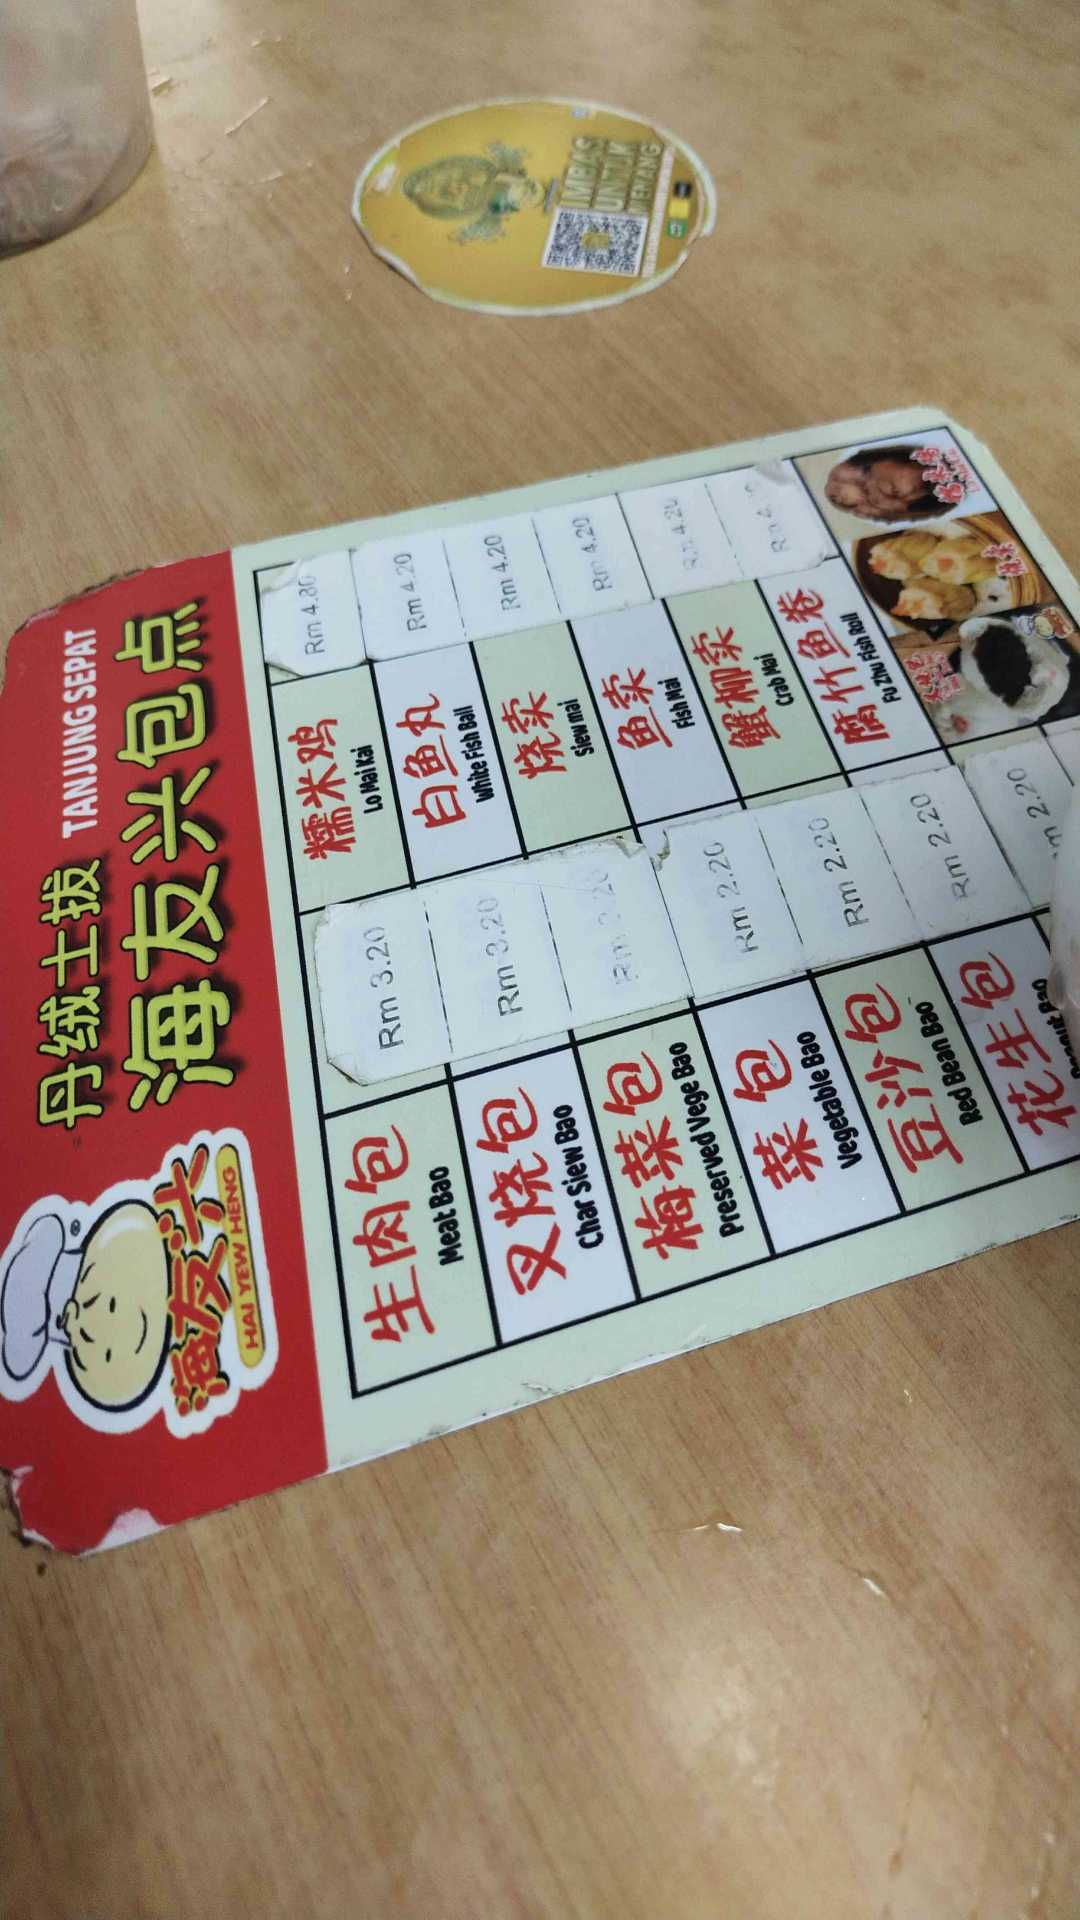 丹绒士拔 TANJUNG SEPAT
海友兴包点
®
海友兴
HAI YEW HENG
生肉包
Meat Bao
Rm 3.20
糯米鸡
Lo Mai Kai
Rm 4.80
叉烧包
Char Siew Bao
Rm 3.20
白鱼丸
White Fish Ball
Rm 4.20
梅菜包
Preserved Vege Bao
Rm 3.20
烧卖
Siew mai
Rm 4.20
菜包
Vegetable Bao
Rm 2.20
鱼卖
Fish Mai
Rm 4.20
豆沙包
Red Bean Bao
Rm 2.20
蟹柳卖
Crab Mai
Rm 4.20
花生包
Bao
Rm 2.20
腐竹鱼卷
Fu Zhu Fish Roll
2.20
IMBAS
UNTUK
MENANG